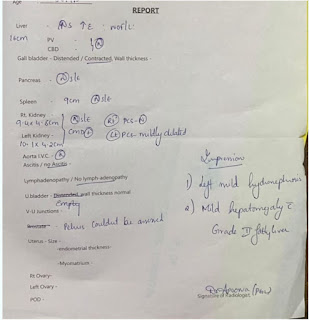 Age
REPORT
Liver - (N) S ↑E no F/L
16cm PV -
CBD - } (N)
Gall bladder - Distended / Contracted. Wall thickness -
Pancreas - (N) S/E
Spleen - 9cm (N) S/E
Rt. Kidney - (N) S/E (Rt) PCS - (N)
9.4 x 4.6cm
Left Kidney - CMD (Lt) PCS mildly dilated
10.1 x 4.2cm
Aorta I.V.C - (N)
Ascitis / no Ascitis -
Impression
Lymphadenopathy / No lymph adenopathy
1) Left mild hydronephrosis
U.bladder - Distended wall thickness normal
Empty
2) Mild hepatomegaly c
V-U Junctions -
Grade II fatty liver
Prostate - Pelvis couldn't be assessed
Uterus - Size -
-endometrial thickness-
-Myometrium -
Rt Ovary-
Left Ovary -
Signature of Radiologist
POD -